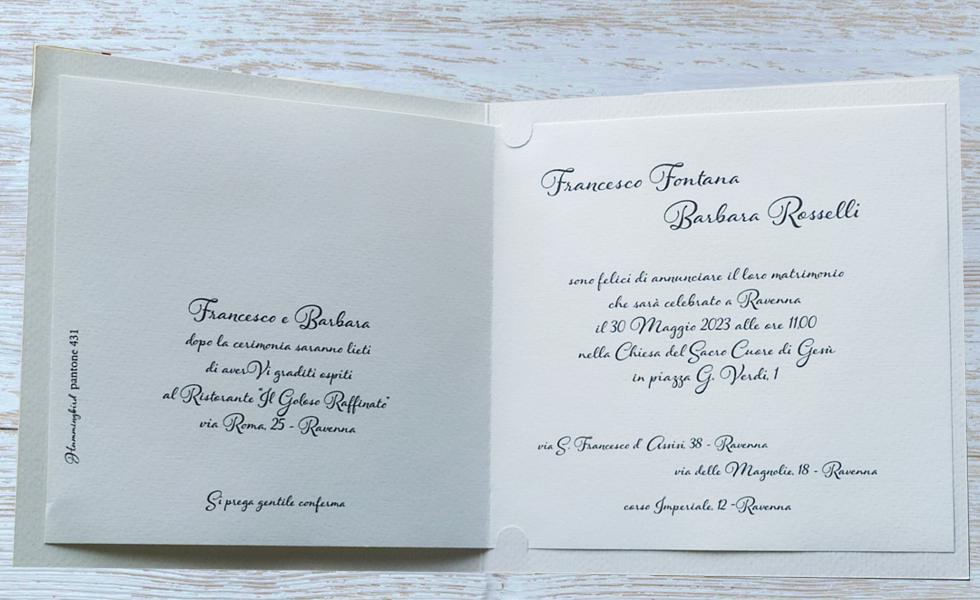 Hummingbird pantone 431
Francesco e Barbara
dopo la cerimonia saranno lieti
di averVi graditi ospiti
al Ristorante "Il Goloso Raffinato"
via Roma, 25 - Ravenna
Si prega gentile conferma
Francesco Fontana
Barbara Rosselli
sono felici di annunciare il loro matrimonio
che sarà celebrato a Ravenna
il 30 Maggio 2023 alle ore 11,00
nella Chiesa del Sacro Cuore di Gesù
in piazza G. Verdi, 1
via S. Francesco d'Assisi, 38 - Ravenna
via delle Magnolie, 18 - Ravenna
corso Imperiale, 12 - Ravenna